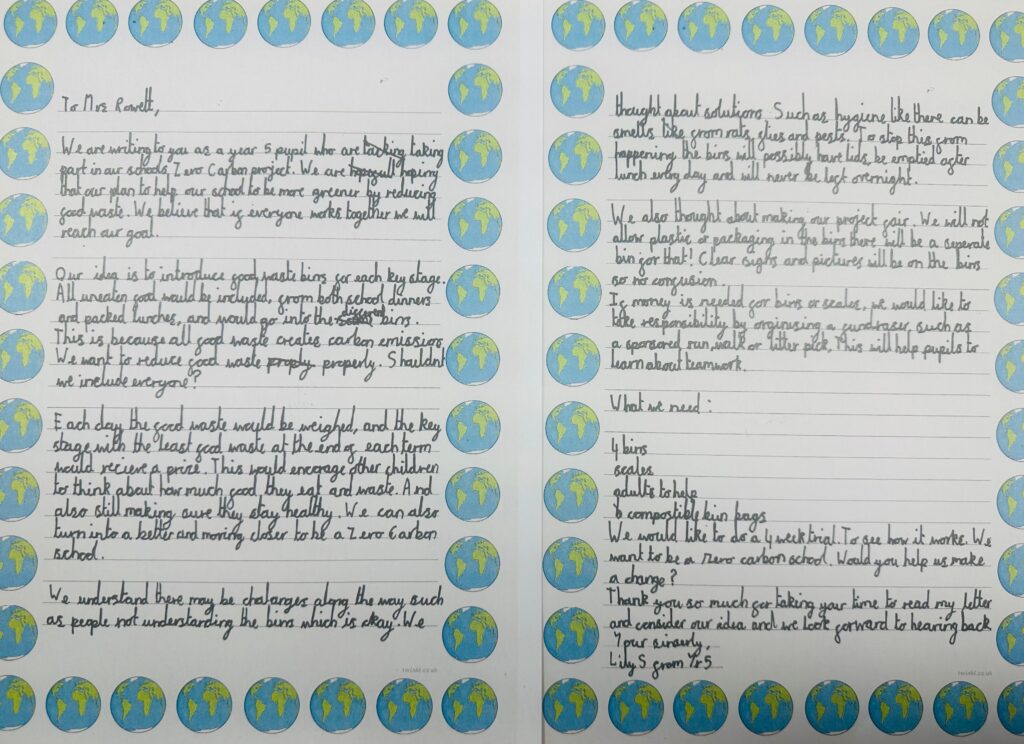 To Mrs Rowett,
We are writing to you as a year 5 pupil who are tacking taking
part in our schools, Zero Carbon project. We are hopeful hoping
that our plan to help our school to be more greener by reducing
food waste. We believe that if everyone works together we will
reach our goal.
Our idea is to introduce food waste bins for each key stage.
All uneaten food would be included, from both school dinners
and packed lunches, and would go into the different bins.
This is because all food waste creates carbon emissions
We want to reduce food waste proply properly. Shouldnt
we include everyone?
Each day the food waste would be weighed, and the key
stage with the least food waste at the end of each term
would recieve a prize. This would encourage other children
to think about how much food they eat and waste. And
also still making sure they stay healthy. We can also
turn into a better and moving closer to be a Zero Carbon
school.
We understand there may be chalanges along the way such
as people not understanding the bins which is okay. We
twinkl.co.uk
thought about solutions. Such as hygiene like there can be
smells like from rats, flies and pests. To stop this from
happening the bins will possibly have lids, be emptied after
lunch every day and will never be left overnight.
We also thought about making our project fair. We will not
allow plastic or packaging in the bins there will be a seperate
bin for that! Clear signs and pictures will be on the bins
so no confusion.
If money is needed for bins or scales, we would like to
take responsibility by orginusing a fundraser, such as
a sponsored run, walk or litter pick. This will help pupils to
learn about teamwork.
What we need:
4 bins
scales
adults to help
6 compostible bin bags
We would like to do a 4 week trial. To see how it works. We
want to be a zero carbon school. Would you help us make
a change?
Thank you so much for taking your time to read my letter
and consider our idea and we look forward to hearing back
Your sinserly,
Lily S from Yr5
twinkl.co.uk